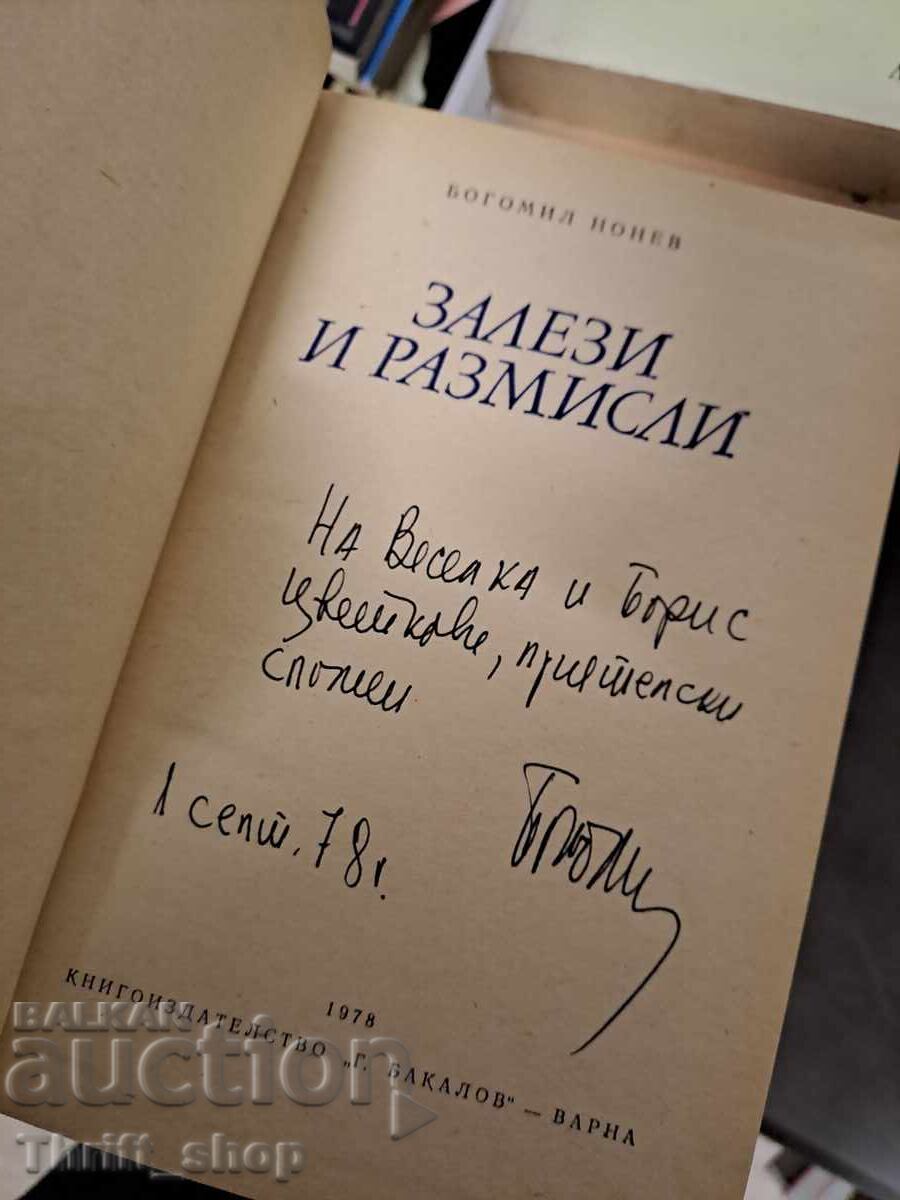 БОГОМИЛ НОНЕВ
ЗАЛЕЗИ
И РАЗМИСЛИ
На Веселка и Борис
Цветкови, приятелски
спомен
1 септ. 78 г.
1978
КНИГОИЗДАТЕЛСТВО „Г. БАКАЛОВ“ — ВАРНА
BALKAN
auction
Thrift_shop